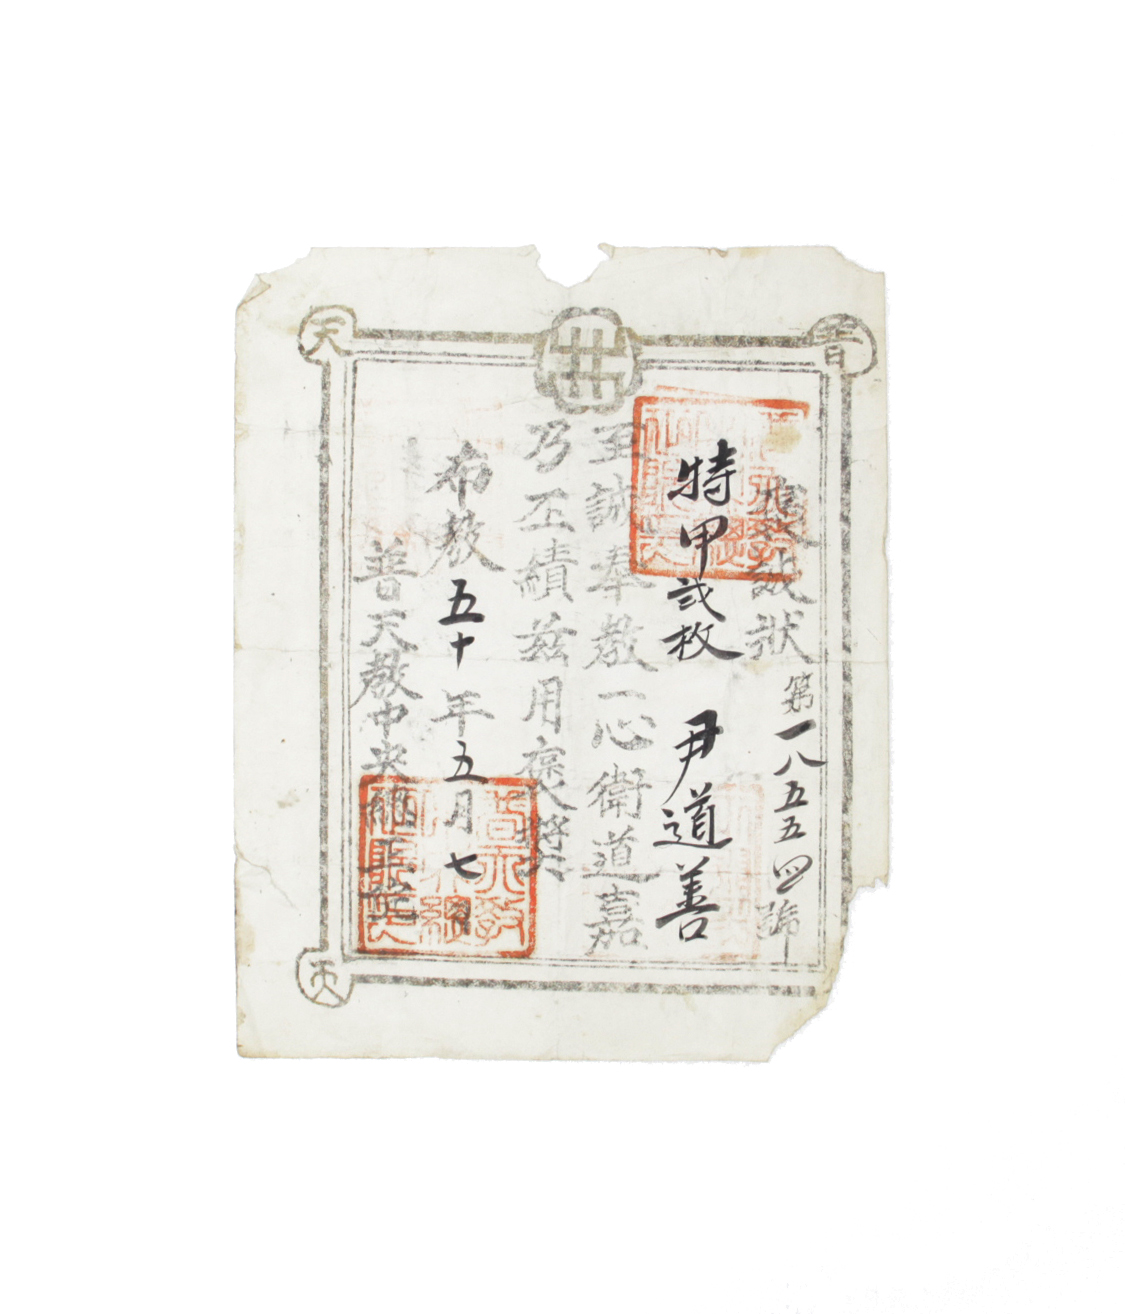 普
天
狀 第一八五五四號
特甲弍枚 尹道善
至誠奉敎一心衛道嘉
乃丕績茲用褒奬
布敎五十年五月七日
普天敎中央總正院
天